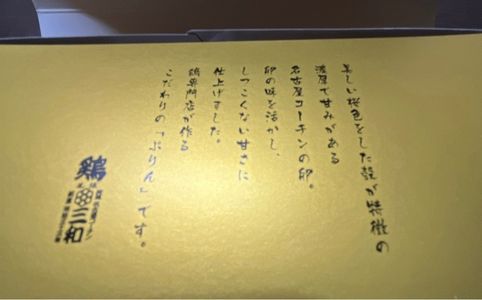 美しい桜色をした殻が特徴の
濃厚で甘みがある
名古屋コーチンの卵。
卵の味を活かし、
しつこくない甘さに
仕上げました。
鶏専門店が作る
こだわりの「ぷりん」です。
鶏
三和